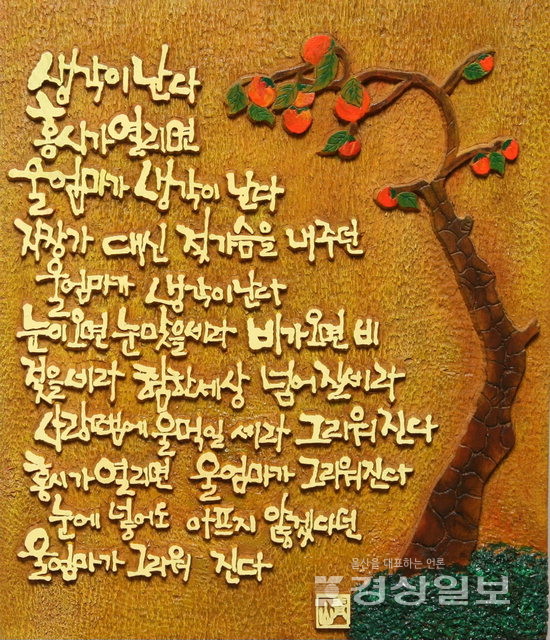 생각이 난다
홍시가 열리면
울엄마가 생각이 난다
자장가 대신 젖가슴을 내주던
울엄마가 생각이 난다
눈이오면 눈맞을세라 비가오면 비
젖을세라 험한세상 넘어질세라
사랑땜에 울먹일 세라 그리워진다
홍시가 열리면 울엄마가 그리워진다
눈에 넣어도 아프지 않겠다던
울엄마가 그리워 진다
울산을 대표하는 언론
경상일보